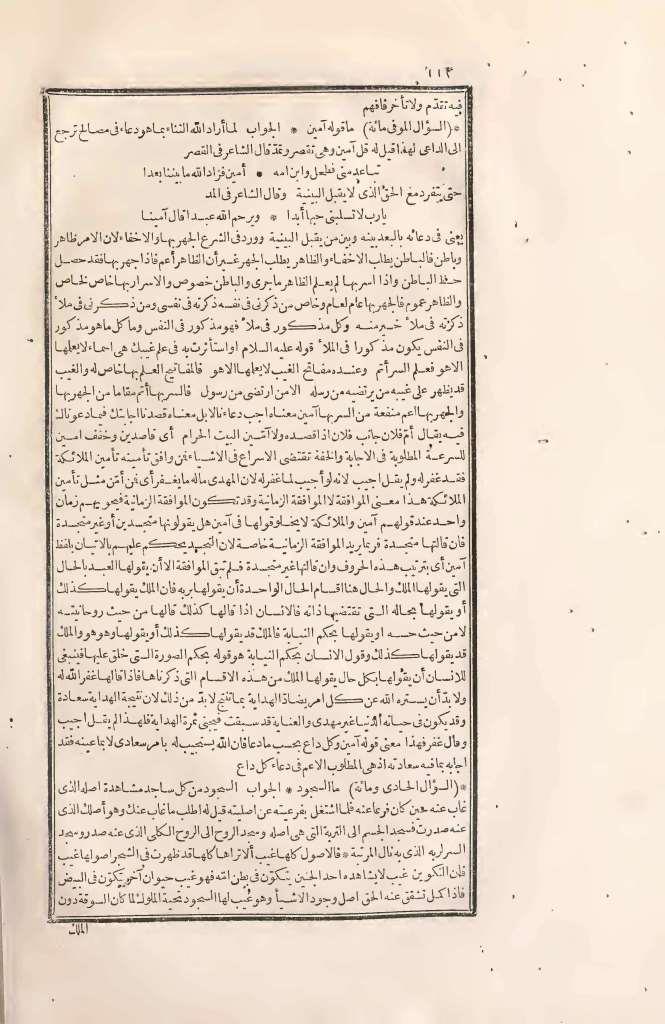 ١١٣
فيه تقدّم ولا تأخر فافهم
* (السؤال الموفى مائة) ما قوله آمين * الجواب لما أراد الله الثناء بما هو دعاء فى مصالح ترجع
الى الداعى لهذا قيل له قل آمين وهى تقصر وتمدّ قال الشاعر فى القصر
تباعد منى فطحل وابن امه * أمين فزاد الله ما بيننا بعدا
حتى يتفرد مع الحق الذى لا يقبل البينية وقال الشاعر فى المد
يا رب لا تسلبنى حبها أبدا * ويرحم الله عبدا قال آمينا
يعنى فى دعائه بالبعد بينه وبين من يقبل البينية وورد فى الشرع الجهر بها والاخفاء لان الامر ظاهر
وباطن فالباطن يطلب الاخفاء والظاهر يطلب الجهر غير أن الظاهر أعم فاذا جهر بها فقد حصل
حظ الباطن واذا اسر بها لم يعلم الظاهر ما جرى والباطن خصوص والاسرار بها خاص لخاص
والظاهر عموم فالجهر بها عام لعام وخاص من ذكرنى فى نفسه ذكرته فى نفسى ومن ذكرنى فى ملأ
ذكرته فى ملأ خير منه وكل مذكور فى ملأ فهو مذكور فى النفس وما كل ما هو مذكور
فى النفس يكون مذكورا فى الملأ قوله عليه السلام او استأثرت به فى علم غيبك هى اسماء لا يعلمها
الا هو فعلم السر أتم وعنده مفاتح الغيب لا يعلمها الا هو فالمفاتيح العلم بها خاص له والغيب
قد يظهر على غيبه من يرتضيه من رسله الا من ارتضى من رسول فالسر بها أتم مقاما من الجهر بها
والجهر بها اعم منفعة من السر بها آمين معناه اجب دعاءنا لا بل معناه قصدنا اجابتك فيما دعوناك
فيه يقال أمّ فلان جانب فلان اذا قصده ولا آمّين البيت الحرام أى قاصدين وخفف امين
للسرعة المطلوبة فى الاجابة والخفة تقتضى الاسراع فى الاشياء فمن وافق تأمينه تأمين الملائكة
فقد غفر له ولم يقل اجيب لانه لو أجيب لما غفر له لان المهدى ماله ما يغفر أى فمن أمّن مثل تأمين
الملائكة هذا معنى الموافقة لا الموافقة الزمانية وقد تكون الموافقة الزمانية فيحويهم زمان
واحد عند قولهم آمين والملائكة لا يخلو قولها فى آمين هل يقولونها متجسدين أو غير متجسدة
فان قالتها متجسدة فربما يريد الموافقة الزمانية خاصة لان التجسد يحكم عليهم بالاتيان بلفظ
آمين أى بترتيب هذه الحروف وان قالتها غير متجسدة فلم تبق الموافقة الا أن يقولها العبد بالحال
التى يقولها الملك والحال هنا اقسام الحال الواحدة أن يقولها بربه فان الملك يقولها كذلك
أو يقولها بحاله التى تقتضيها ذاته فالانسان اذا قالها كذلك قالها من حيث روحانيته
لا من حيث حسه او يقولها بحكم النيابة فالملك قد يقولها كذلك أو يقولها وهو هو والملك
قد يقولها كذلك وقول الانسان بحكم النيابة هو قوله بحكم الصورة التى خلق عليها فينبغى
للانسان أن يقولها بكل حال يقولها الملك من هذه الاقسام التى ذكرناها فاذا قالها غفر الله له
ولا بدّ أن يستره الله عن كل امر يضاد الهداية بما تنتج لا بدّ من ذلك لان نتيجة الهداية سعادة
وقد يكون فى حياته الدنيا غير مهدى والعناية قد سبقت فيجنى ثمرة الهداية فلهذا لم يقل اجيب
وقال غفر فهذا معنى قوله آمين وكل داع بحسب ما دعا فان الله يستجيب له بامر سعادى لا بما عينه فقد
اجابه بما فيه سعادته اذ هى المطلوب الاعم فى دعاء كل داع
* (السؤال الحادى ومائة) ما السجود * الجواب السجود من كل ساجد مشاهدة اصله الذى
غاب عنه حين كان فرعا عنه فلما اشتغل بفرعيته عن اصليته قيل له اطلب ما غاب عنك وهو أصلك الذى
عنه صدرت فسجد الجسم الى التربة التى هى اصله وسجد الروح الى الروح الكلى الذى عنه صدر وسجد
السر لربه الذى به نال المرتبة * فالاصول كلها غيب ألا تراها كلها قد ظهرت فى الشجر اصولها غيب
فان التكوين غيب لا يشاهده احد الجنين يتكوّن فى بطن امه فهو غيب حيوان آخر يتكوّن فى البيض
فاذا كمل تشقق عنه الحق اصل وجود الاشياء وهو غيب لها السجود تحية الملوك لما كان السوقة دون
الملك